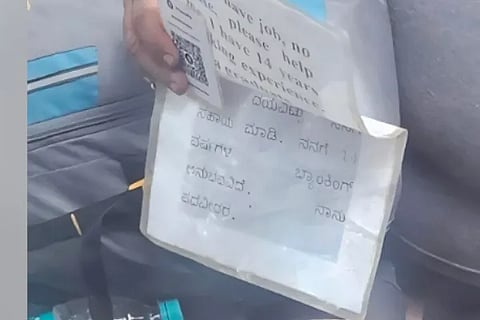 have job, no
please help
have 14 years
king experience.
ದಯವಿಟ್ಟು
ಸಹಾಯ ಮಾಡಿ. ನನಗೆ
ವರ್ಷಗಳ
ಬ್ಯಾಂಕಿಂಗ್
ಅನುಭವವಿದೆ.
ನಾನು
ಪದವೀಧರ.